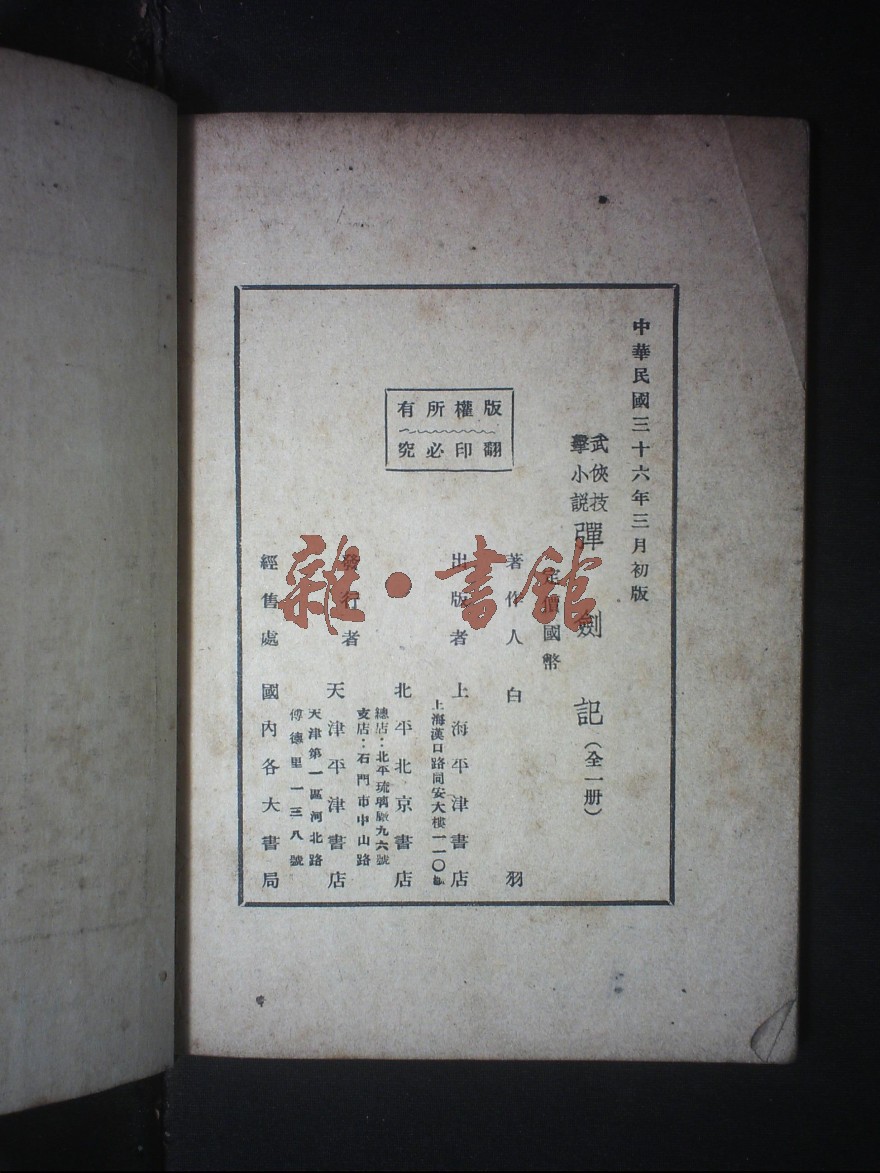 中華民國三十六年三月初版
武俠技擊小說 彈劍記（全一册）
定價國幣
著作人 白羽
出版者 上海平津書店
上海漢口路同安大樓一一〇號
北平北京書店
總店：北平琉璃廠九六號
支店：石門市中山路
發行者 天津平津書店
天津第一區河北路
傅德里一三八號
經售處 國內各大書局
版權所有
翻印必究
雜·書館